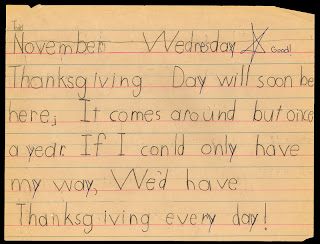 Todd
November Wednesday Good!
Thanksgiving Day will soon be
here, It comes around but once
a year. If I could only have
my way, We'd have
Thanksgiving every day!